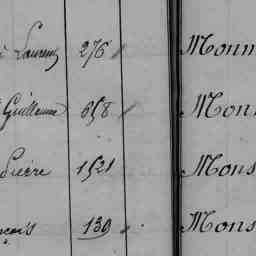 Laurens 276 Monn
Guillaume 658 Mon
Pierre 1521 Mons
nçois 139 Mons